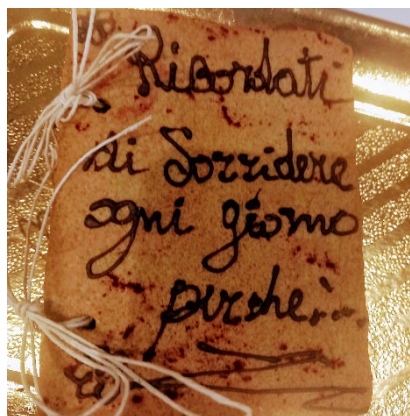 Ricordati
di Sorridere
ogni giorno
perche'...